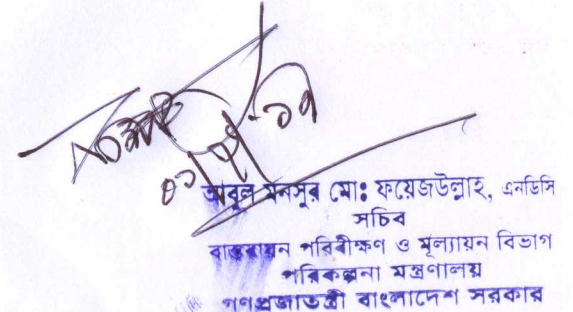 আবুল মনসুর মো: ফয়েজউল্লাহ, এনডিসি
সচিব
বাস্তবায়ন পরিবীক্ষণ ও মূল্যায়ন বিভাগ
পরিকল্পনা মন্ত্রণালয়
গণপ্রজাতন্ত্রী বাংলাদেশ সরকার